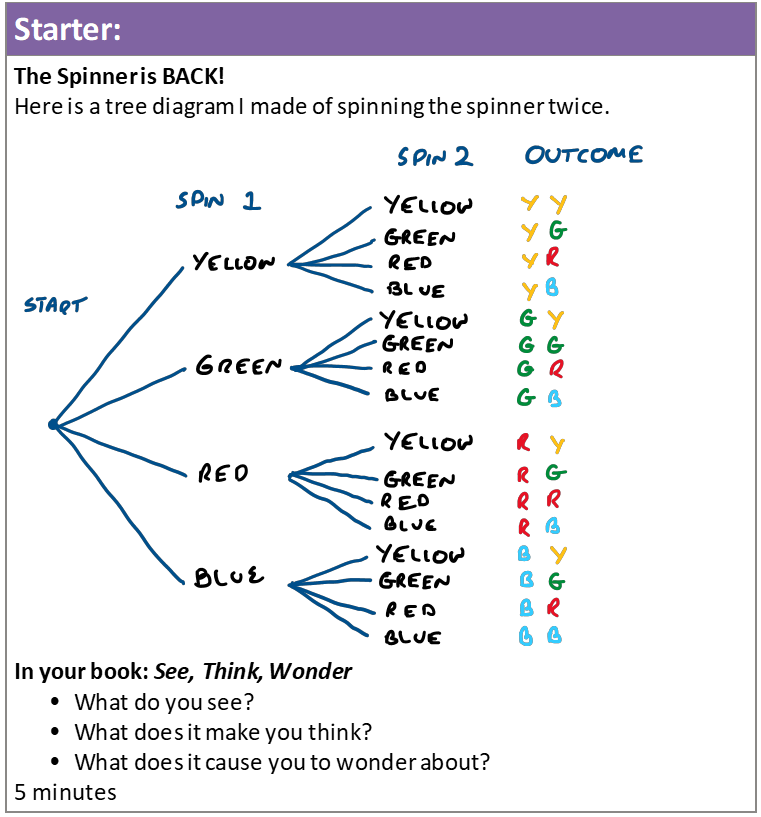 Starter:
The Spinner is BACK!
Here is a tree diagram I made of spinning the spinner twice.
SPIN 2 OUTCOME
SPIN 1
YELLOW Y Y
GREEN Y G
YELLOW RED Y R
BLUE Y B
START
YELLOW G Y
GREEN G G
GREEN RED G R
BLUE G B
YELLOW R Y
RED GREEN R G
RED R R
BLUE R B
YELLOW B Y
BLUE GREEN B G
RED B R
BLUE B B
In your book: See, Think, Wonder
• What do you see?
• What does it make you think?
• What does it cause you to wonder about?
5 minutes